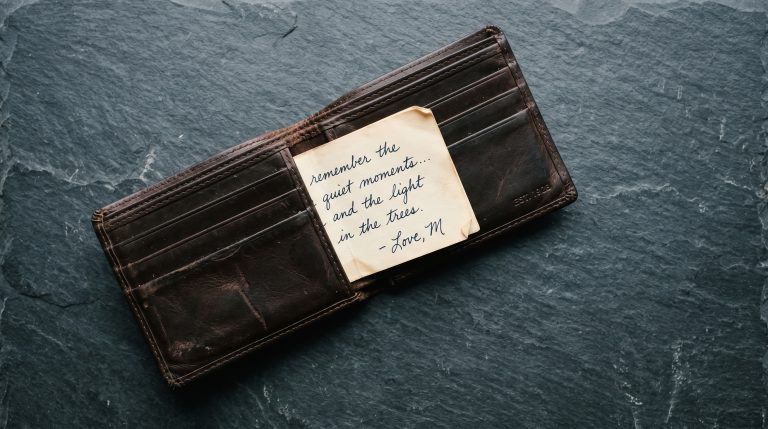 remember the
quiet moments...
and the light
in the trees.
- Love, M